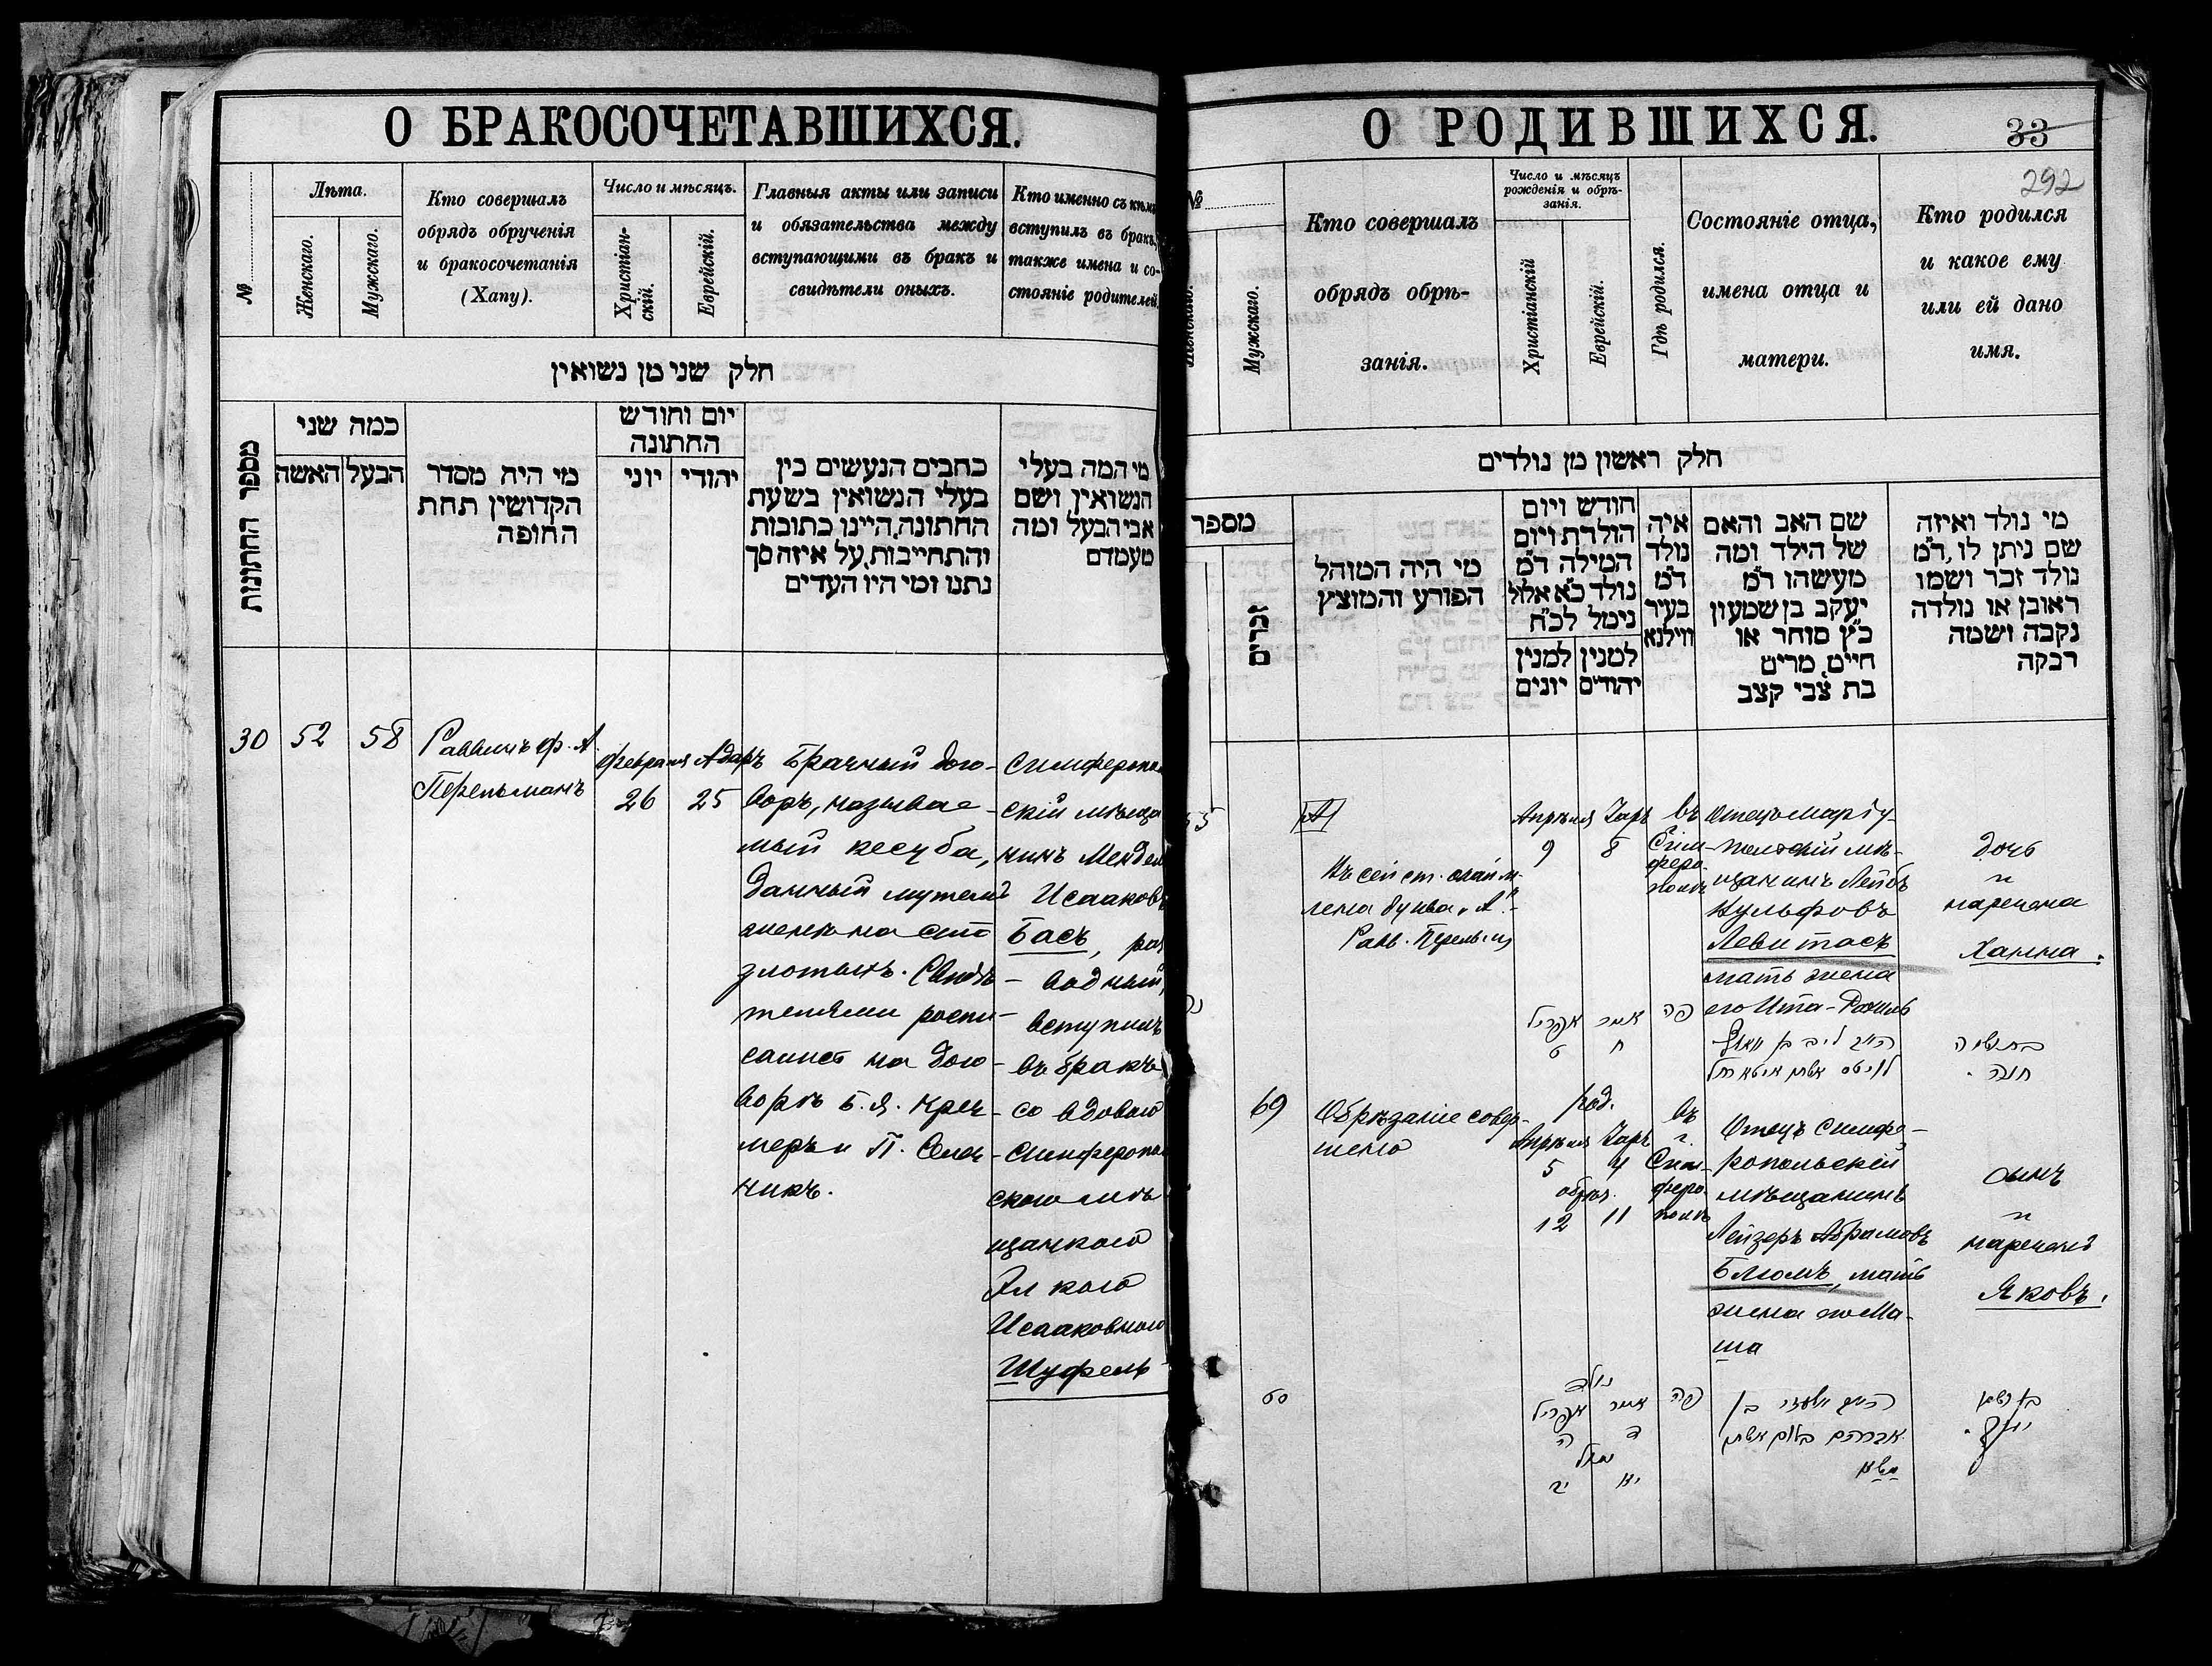 О БРАКОСОЧЕТАВШИХСЯ.
№
Лѣта.
Женскаго.
Мужскаго.
Кто совершалъ
обрядъ обрученія
и бракосочетанія
(Хапу).
Число и мѣсяцъ.
Христіан-
скій.
Еврейскій.
Главныя акты или записи
и обязательства между
вступающими въ бракъ и
свидѣтели оныхъ.
Кто именно съ кѣмъ
вступилъ въ бракъ,
также имена и со-
стояніе родителей.
חלק שני מן נשואין
מספר החתונות
כמה שני
האשה
הבעל
מי היה מסדר
הקדושין תחת
החופה
יום וחודש
החתונה
יוני
יהודי
כתבים הנעשים בין
בעלי הנשואין בשעת
החתונה, היינו כתובות
והתחייבות, על איזה סך
נתנו ומי היו העדים
מי המה בעלי
הנשואין ושם
אבי הבעל ומה
מעמדם
30
52
58
Раввинъ Ф. А.
Перельманъ
Февраля
26
Адаръ
25
Брачный дого-
воръ, называе-
мый кесуба,
данный мужемъ
женѣ на сто
злотыхъ. Свидѣ-
телями роспи-
сались на дого-
ворѣ Б. Я.
меръ и П.
никъ.
Симферопол
скій мѣща
нинъ Мендел
Исааковъ
Басъ, раз
водный,
вступилъ
въ бракъ
со вдовой
Симферопол
скою мѣ
щанкою
Исааковною
Шуфель
О РОДИВШИХСЯ.
33
292
№
Женскаго.
Мужскаго.
Кто совершалъ
обрядъ обрѣ-
занія.
Число и мѣсяцъ
рожденія и обрѣ-
занія.
Христіанскій
Еврейскій.
Гдѣ родился.
Состояніе отца,
имена отца и
матери.
Кто родился
и какое ему
или ей дано
имя.
חלק ראשון מן נולדים
מספר
זכרים
מי היה המוהל
הפורע והמוצץ
חודש ויום
הולדת ויום
המילה ד"מ
נולד כ"א אלול
נימל לכ"ח
למנין
יונים
למנין
יהודים
איה
נולד
ד"מ
בעיר
ווילנא
שם האב והאם
של הילד ומה
מעשהו ד"מ
יעקב בן שמעון
כ"ץ סוחר או
חייט, מרים
בת צבי קצב
מי נולד ואיזה
שם ניתן לו, ד"מ
נולד זכר ושמו
ראובן או נולדה
נקבה ושמה
רבקה
55
А
Къ сей ст.
буква „А".
Равв. Перельман
Апрѣля
9
Іаръ
8
въ
Сим-
феро
полѣ
Отецъ Маріу-
польскій мѣ-
щанинъ Лейбъ
Вульфовъ
Левитасъ
мать жена
его Ита-Рохль
дочь
и
наречена
Ханна.
אפריל
ט
אייר
ח
פה
חנה.
69
Обрѣзаніе совер-
шено
род.
Апрѣля
5
Іаръ
4
обрѣз.
12
11
въ
г.
Сим-
феро-
полѣ
Отецъ Симфе-
ропольскій
мѣщанинъ
Лейзеръ Абрамовъ
Блюмъ, мать
жена его Ма-
ша
сынъ
и
нареченъ
Яковъ.
נולד
אפריל
ה
אייר
ד
נימול
יב
יא
פה
אברהם בלום אשתו
מאשא
יעקב.